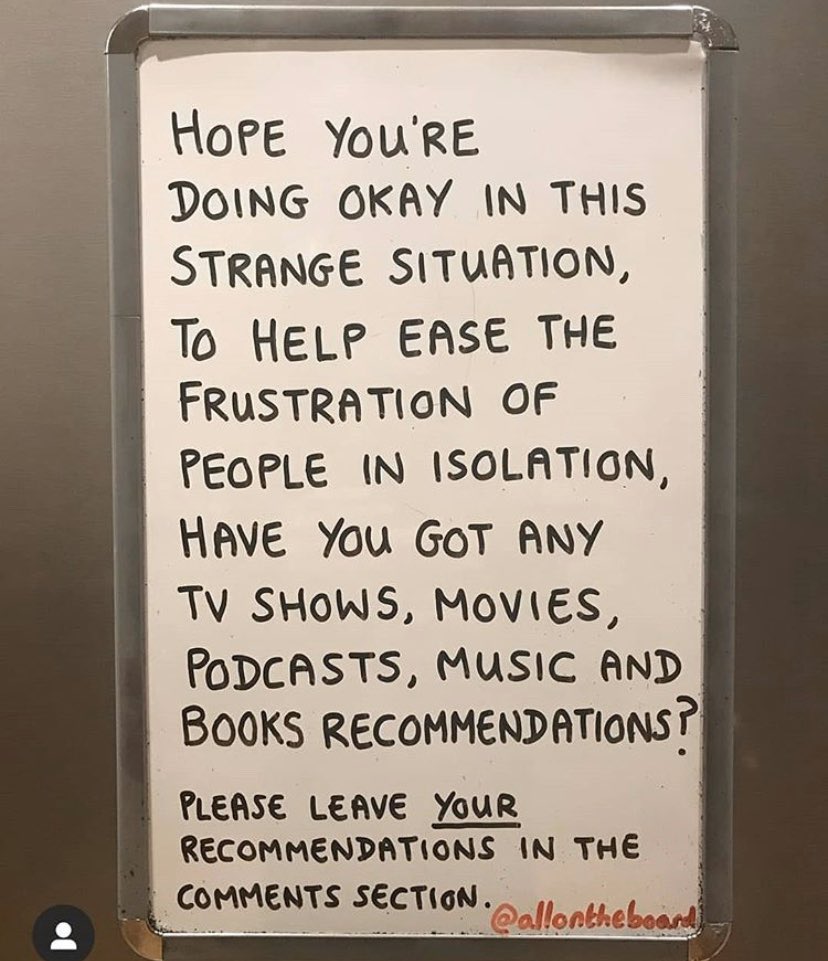 HOPE YOU'RE
DOING OKAY IN THIS
STRANGE SITUATION,
TO HELP EASE THE
FRUSTRATION OF
PEOPLE IN ISOLATION,
HAVE YOU GOT ANY
TV SHOWS, MOVIES,
PODCASTS, MUSIC AND
BOOKS RECOMMENDATIONS?
PLEASE LEAVE YOUR
RECOMMENDATIONS IN THE
COMMENTS SECTION.
@allontheboard